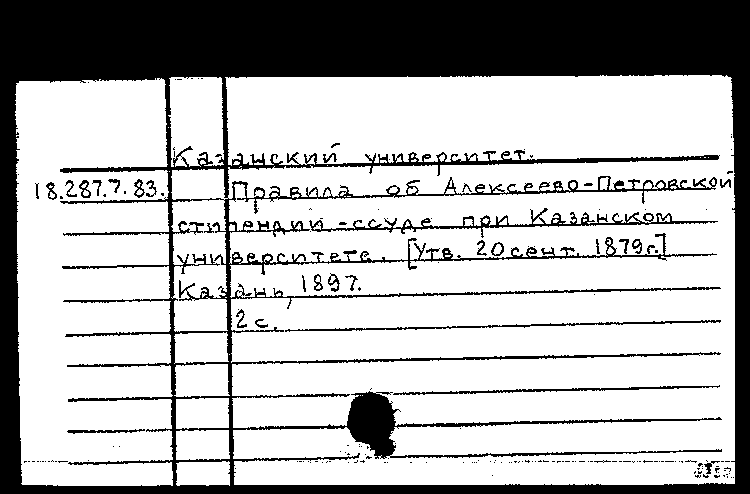 Казанский университет.
18.287.7.83. Правила об Алексеево-Петровской
стипендии-ссуде при Казанском
университете. [Утв. 20 сент. 1879 г.]
Казань, 1897.
2 с.